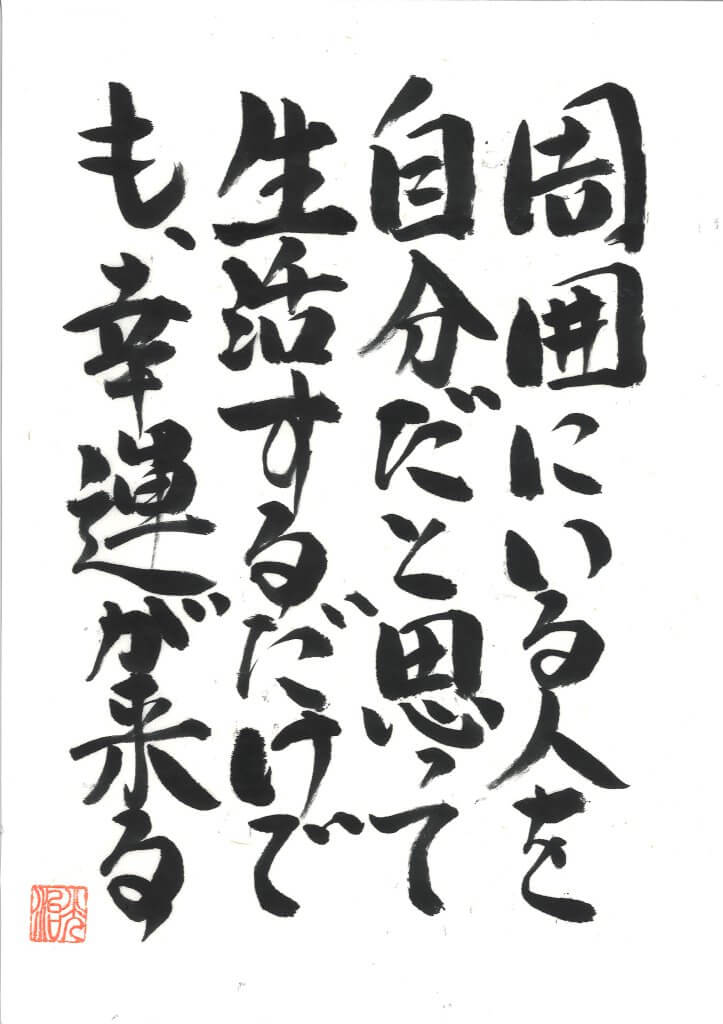 周囲にいる人を
自分だと思って
生活するだけで
も、幸運が来る